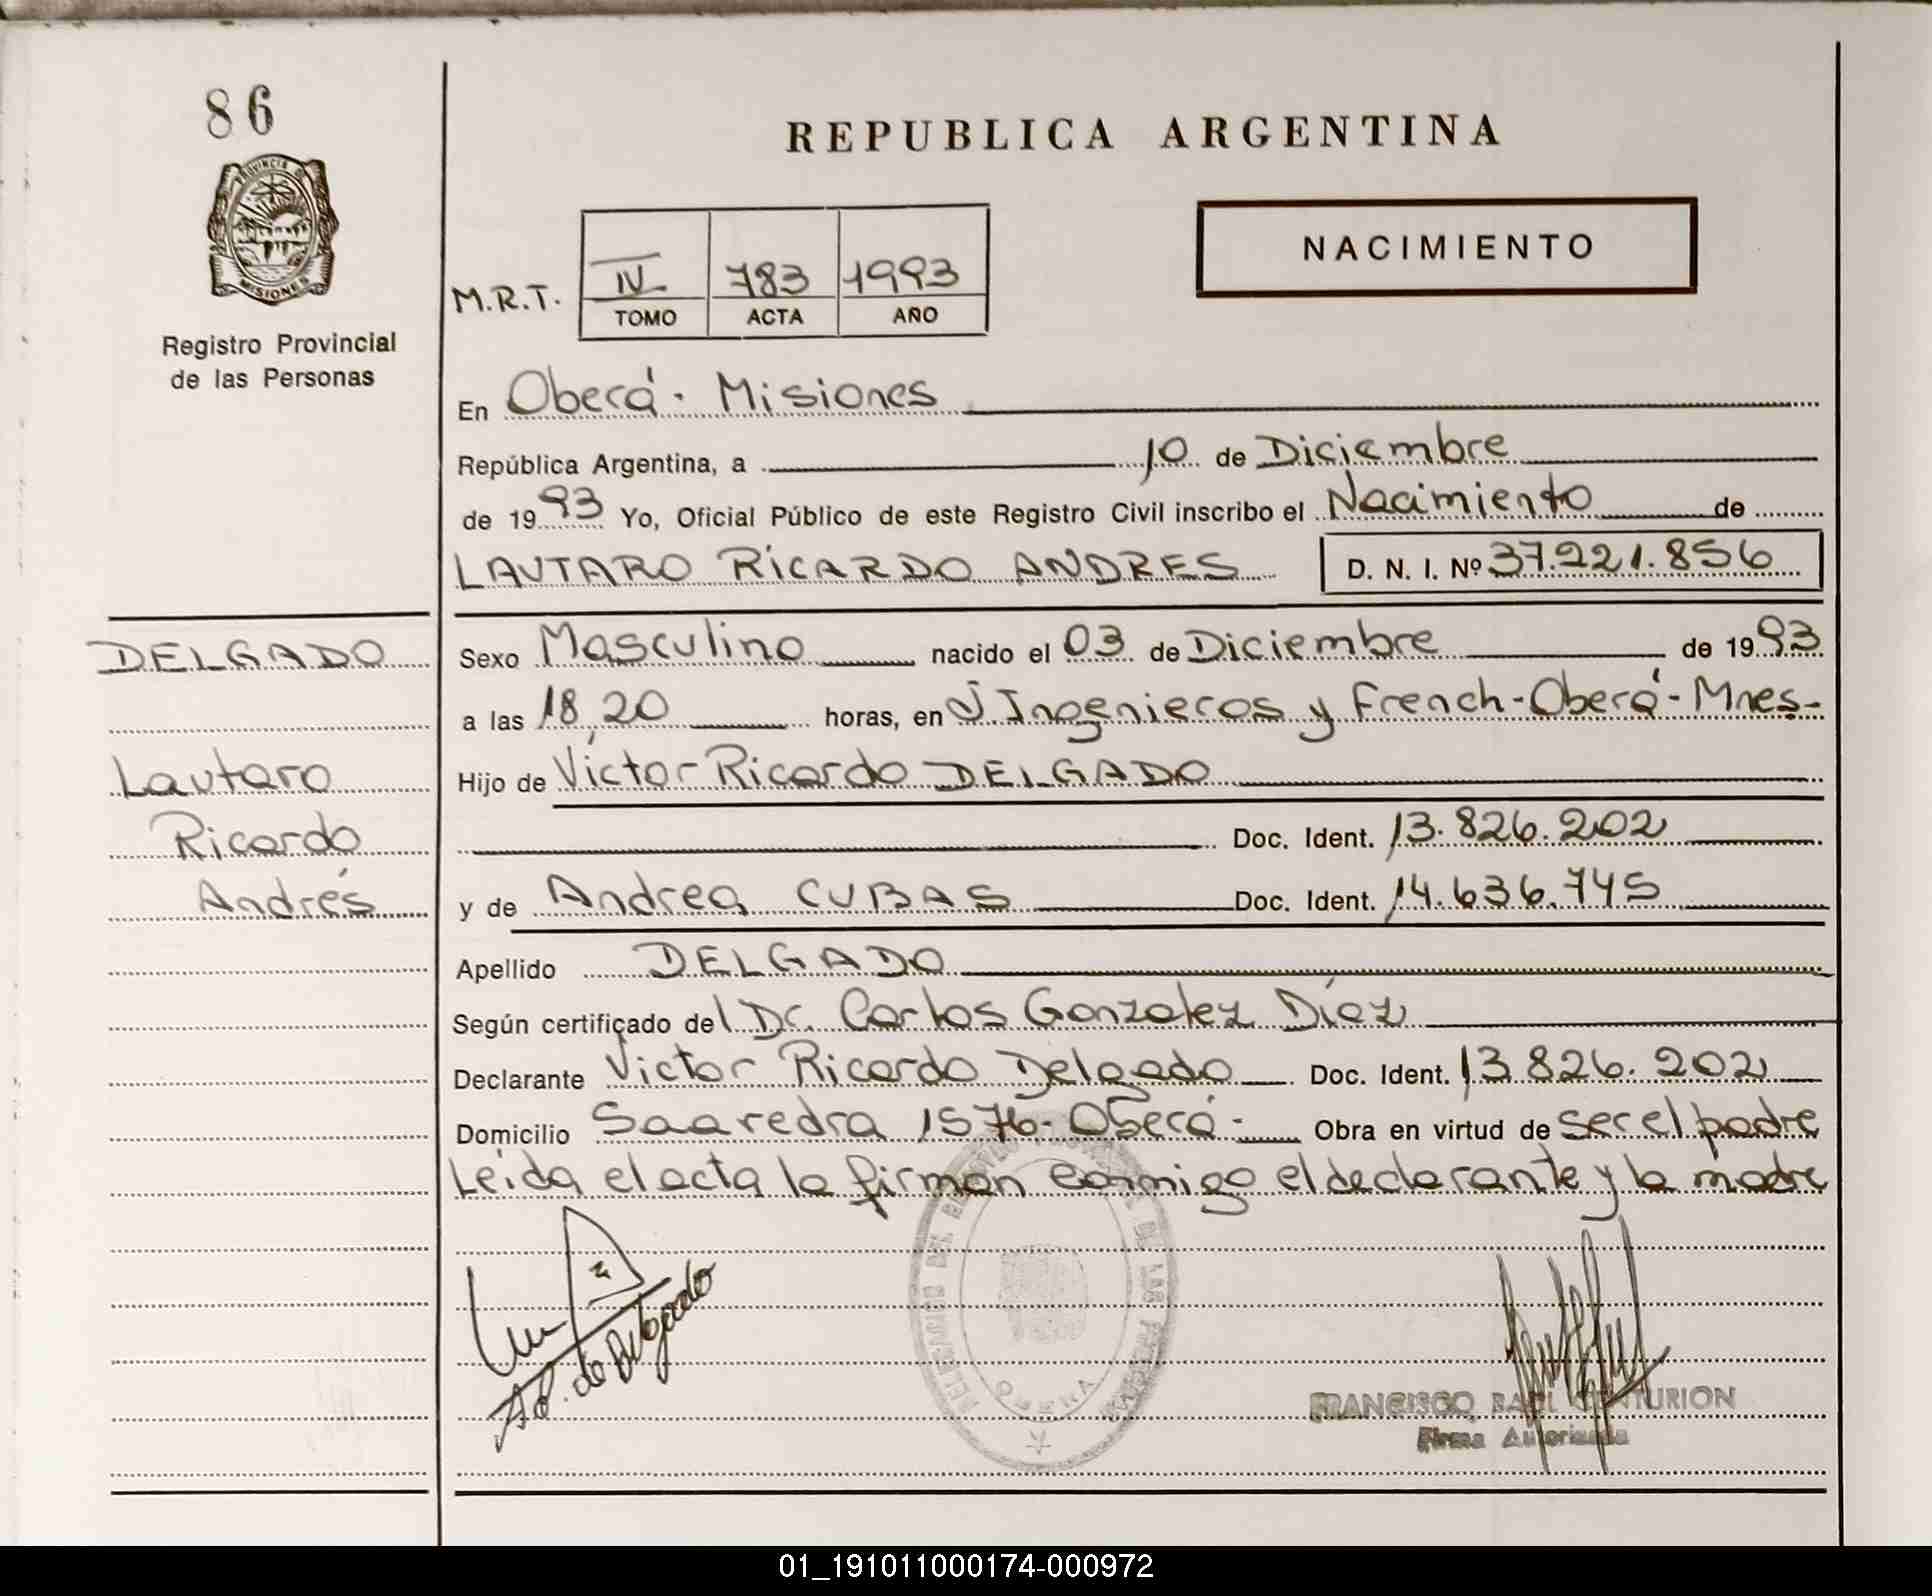 86
PROVINCIA
MISIONES
Registro Provincial
de las Personas
REPUBLICA ARGENTINA
NACIMIENTO
M.R.T.
IV 783 1993
TOMO ACTA AÑO
En Oberá. Misiones
República Argentina, a 10 de Diciembre
de 1993 Yo, Oficial Público de este Registro Civil inscribo el Nacimiento de
LAUTARO RICARDO ANDRES D. N. I. Nº 37.221.856
DELGADO
Lautaro
Ricardo
Andrés
Sexo Masculino nacido el 03 de Diciembre de 1993
a las 18,20 horas, en J Ingenieros y French-Oberá-Mnes-
Hijo de Víctor Ricardo DELGADO
Doc. Ident. 13.826.202
y de Andrea CUBAS Doc. Ident. 14.636.745
Apellido DELGADO
Según certificado del Dr. Carlos Gonzalez Díaz
Declarante Victor Ricardo Delgado Doc. Ident. 13.826.202
Domicilio Saavedra 1576-Oberá- Obra en virtud de ser el padre
Leida el acta la firman conmigo el declarante y la madre
de Delgado
DEL REGISTRO DE LAS PERSONAS
OBERA
FRANCISCO CENTURION
Firma Autorizada
01_191011000174-000972